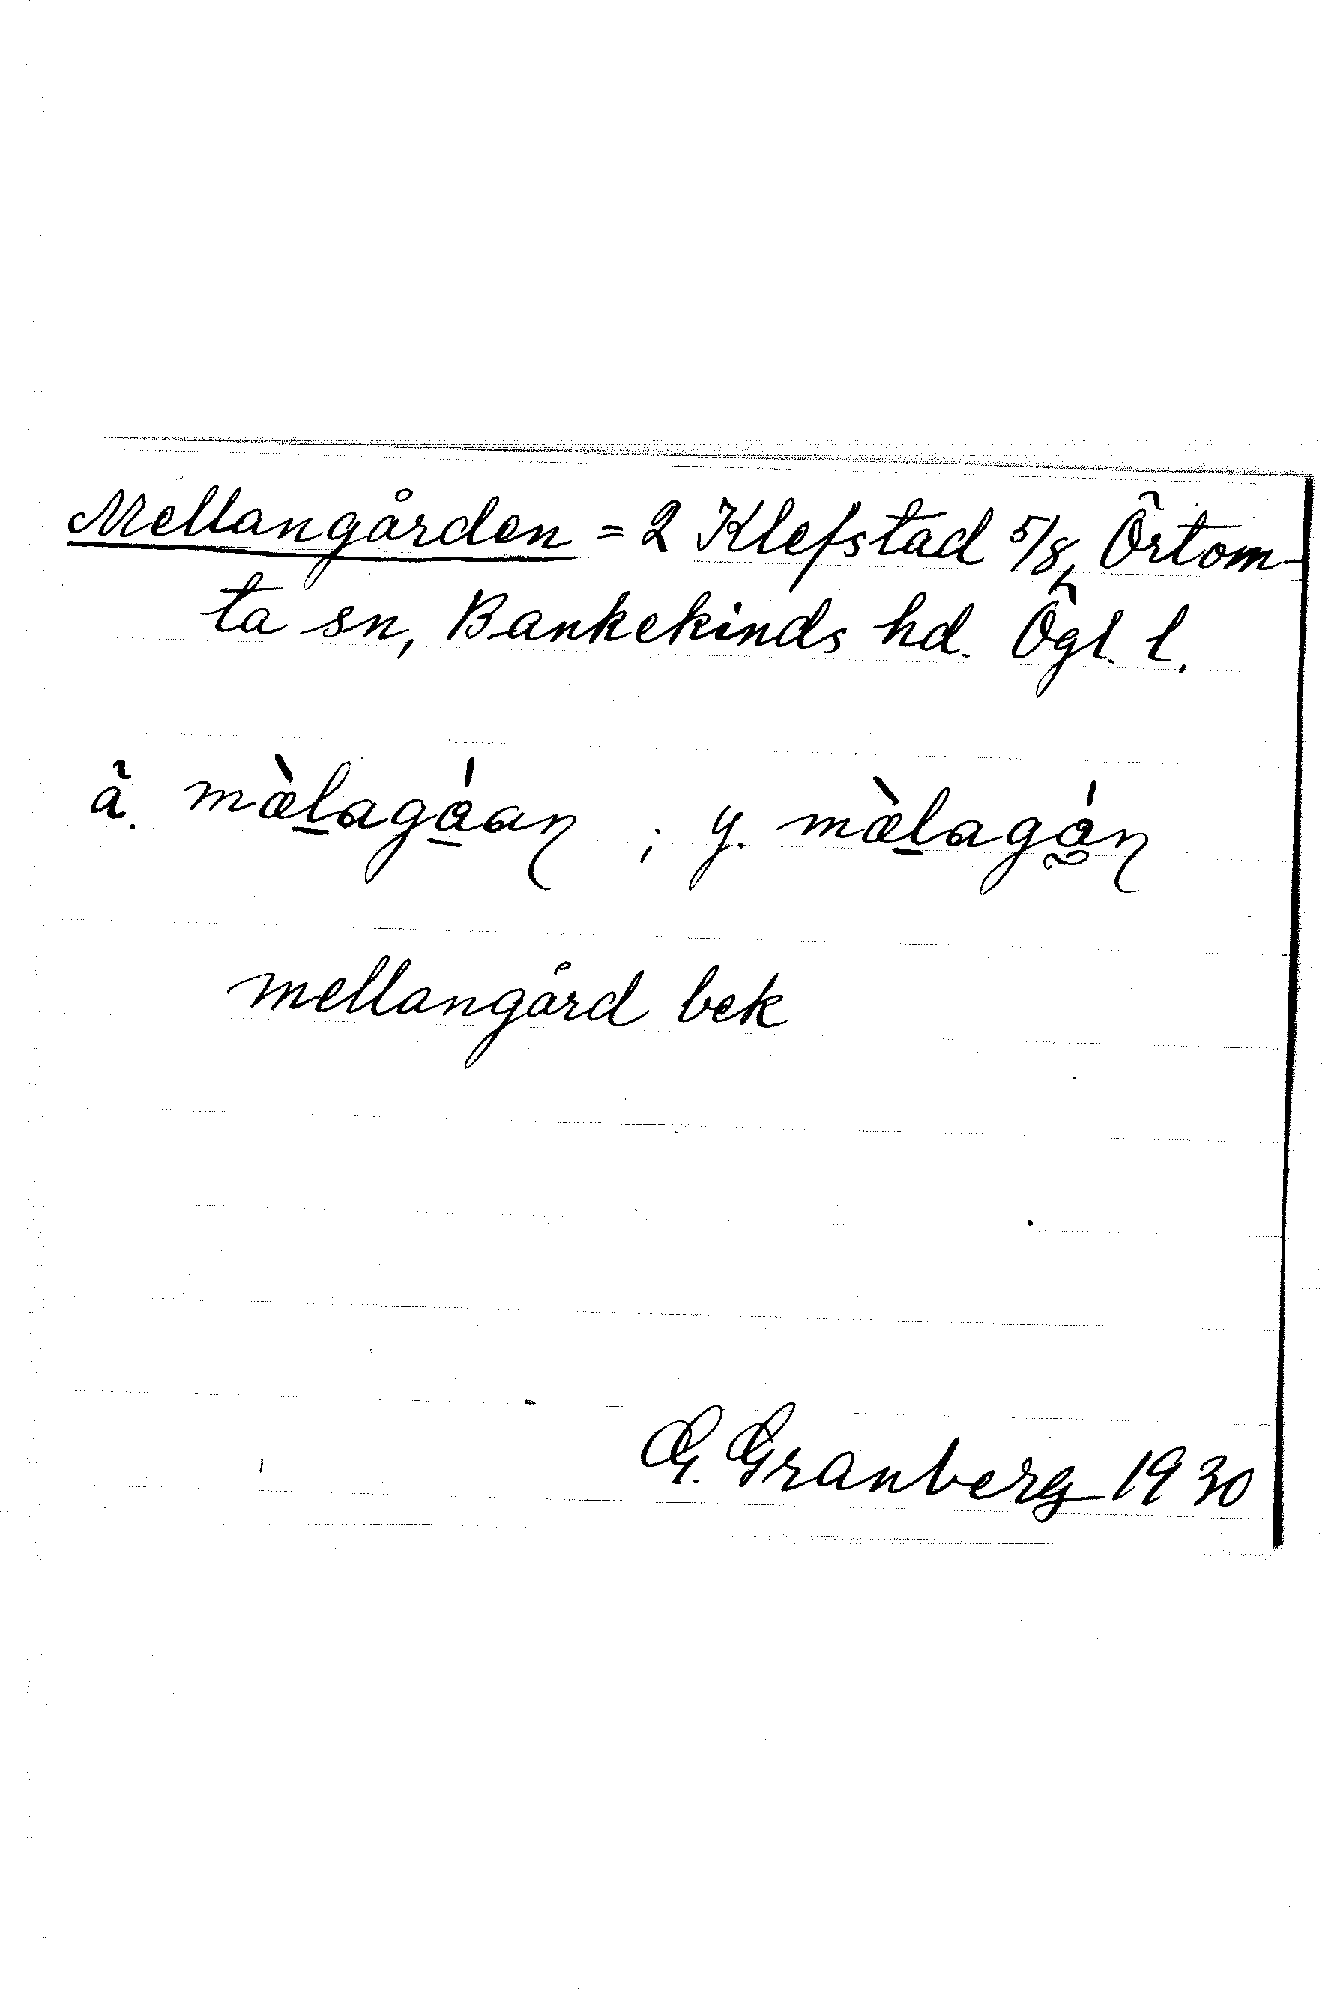 Mellangården = 2 Klefstad 5/8, Örtom-
ta sn, Bankekinds hd. Ögl. l.
ä. mæ̀l̠agá̠aɳ ; y. mæ̀l̠agáɳ
mellangård bek
G. Granberg 1930